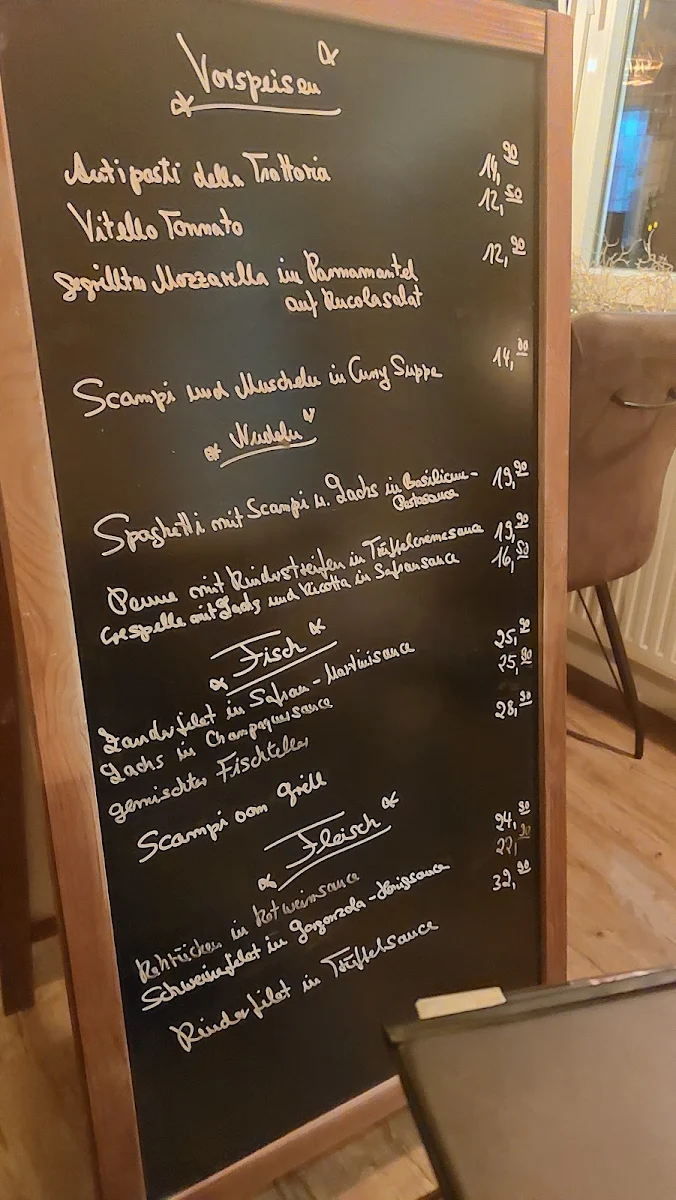 Vorspeisen
Antipasti della Trattoria 14,90
Vitello Tonnato 12,50
gegrillter Mozzarella in Parmamantel 12,90
auf Rucolasalat
Scampi und Muscheln in Curry Suppe 14,00
Nudeln
Spaghetti mit Scampi u. Lachs in Basilicum- 19,90
Pestosauce
Penne mit Rinderstreifen in Trüffelcremesauce 19,90
Crespelle mit Lachs und Ricotta in Safransauce 16,50
Fisch
Zanderfilet in Safran-Martinisauce 25,90
Lachs in Champagnersauce 25,90
gemischter Fischteller 28,90
Scampi vom Grill
Fleisch
Rehrücken in Rotweinsauce 24,90
Schweinefilet in Gorgonzola-Honigsauce 22,90
Rinderfilet in Trüffelsauce 32,90